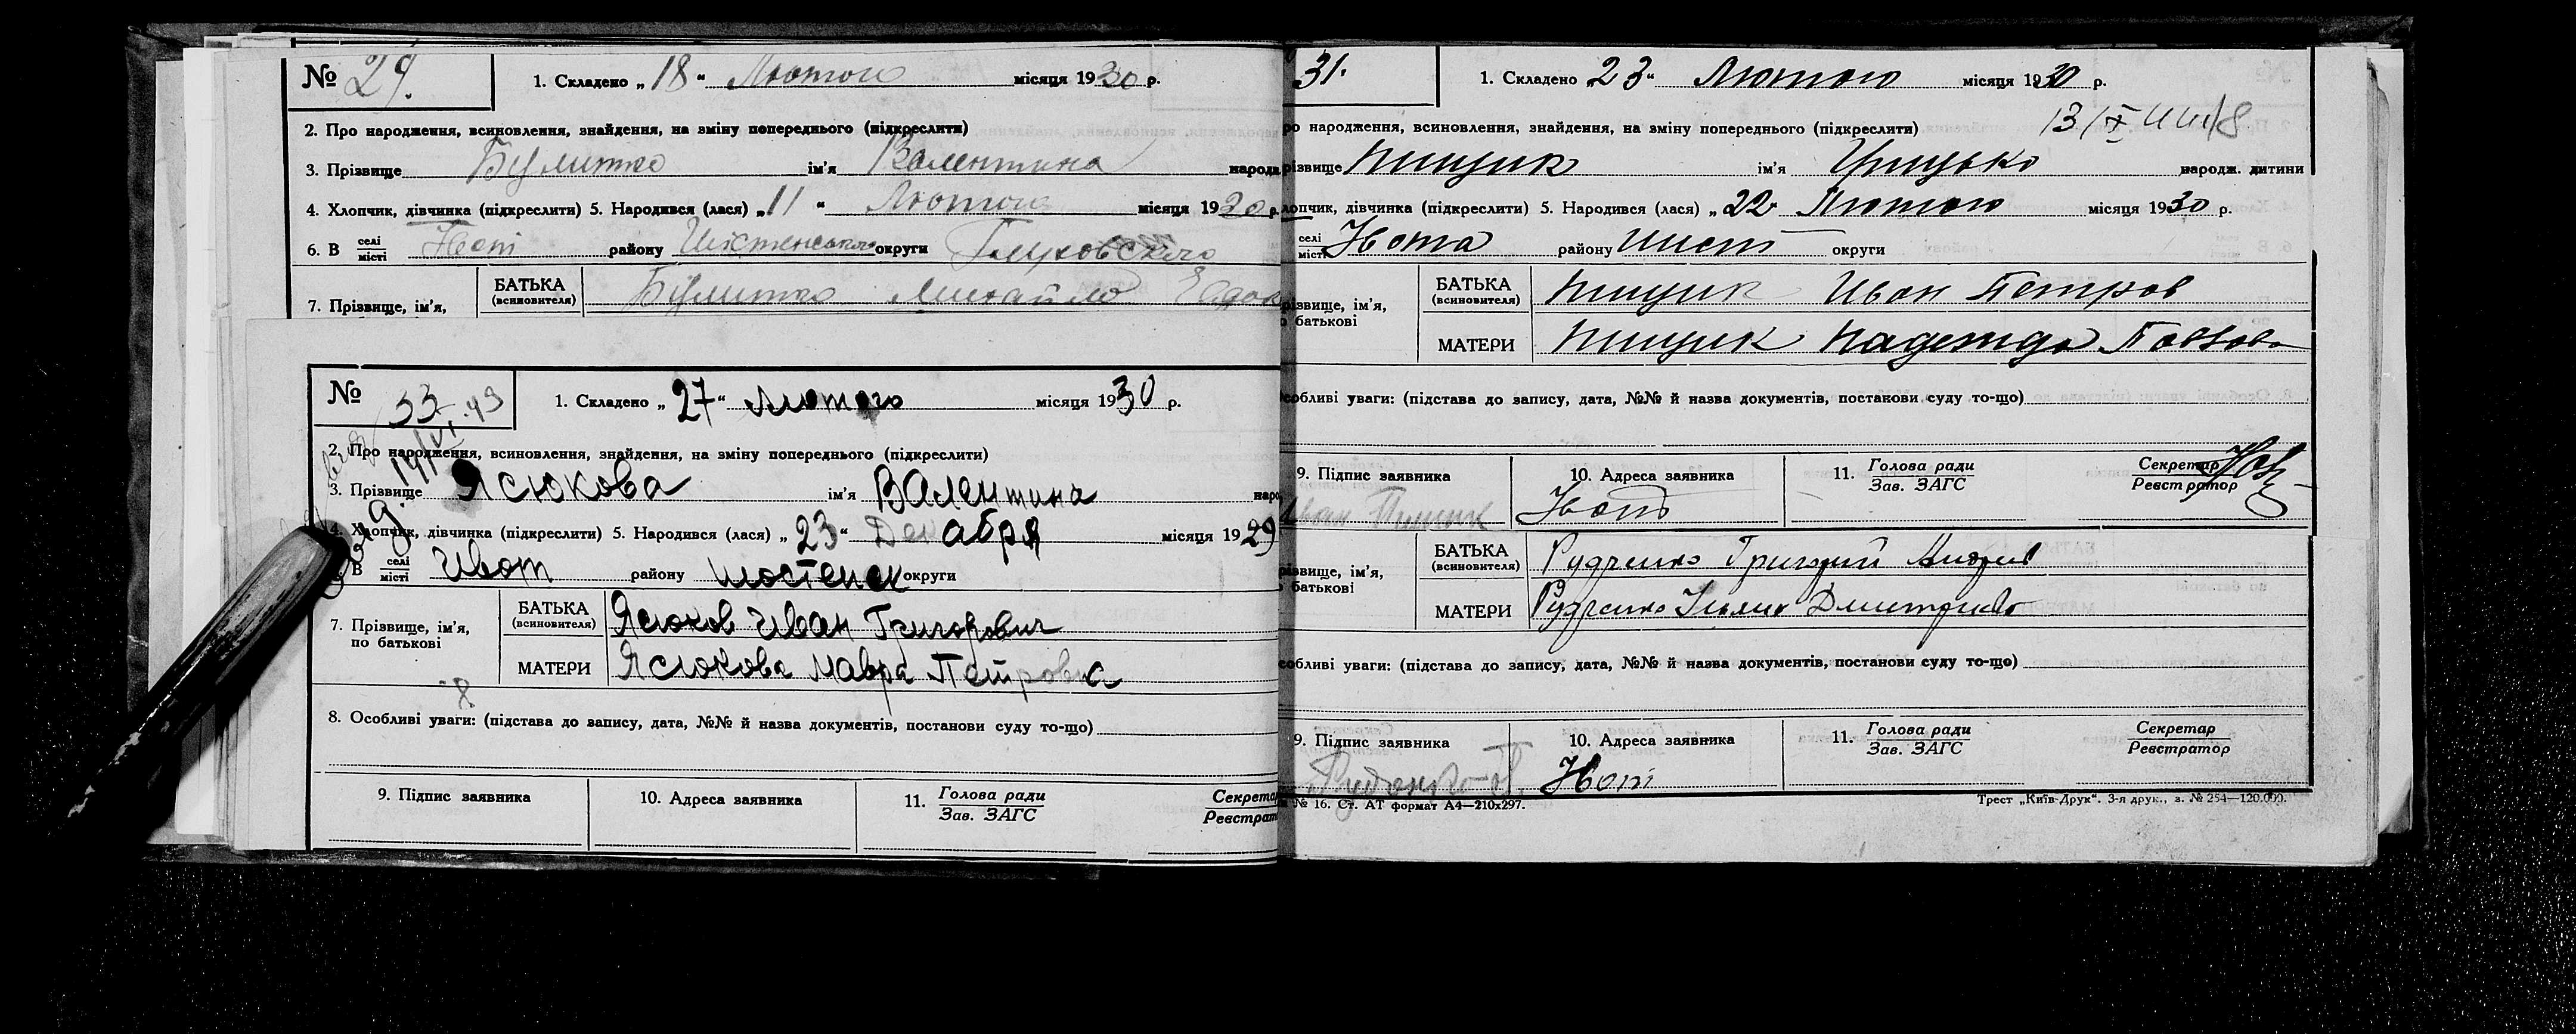 № 29. 1. Складено „18“ Лютого місяця 1930 р.
2. Про народження, всиновлення, знайдення, на зміну попереднього (підкреслити)
3. Прізвище ім'я Валентина народ
4. Хлопчик, дівчинка (підкреслити) 5. Народився (лася) „11“ Лютого місяця 1930 р.
6. В селі місті району округи Глуховского
БАТЬКА
(всиновителя) Михайло
7. Прізвище, ім'я,
№ 33 1. Складено „27“ Лютого місяця 1930 р.
2. Про народження, всиновлення, знайдення, на зміну попереднього (підкреслити)
3. Прізвище Ясюкова ім'я Валентина наро
4. Хлопчик, дівчинка (підкреслити) 5. Народився (лася) „23“ Декабря місяця 1929
В селі місті Ивот району шостенск округи
БАТЬКА
(всиновителя) Ясюков Иван Григорович
7. Прізвище, ім'я,
по батькові
МАТЕРИ Ясюкова Мавра Петровна
8. Особливі уваги: (підстава до запису, дата, №№ й назва документів, постанови суду то-що)
9. Підпис заявника 10. Адреса заявника 11. Голова ради Секретар
Зав. ЗАГС Реєстрат
31. 1. Складено „23“ Лютого місяця 1930 р.
ро народження, всиновлення, знайдення, на зміну попереднього (підкреслити)
різвище Пищик ім'я Грицько народж. дитини
лопчик, дівчинка (підкреслити) 5. Народився (лася) „22“ Лютого місяця 1930 р.
селі місті району округи
БАТЬКА
(всиновителя) Пищик Иван Петров
різвище, ім'я,
о батькові
МАТЕРИ Пищик Надежда
собливі уваги: (підстава до запису, дата, №№ й назва документів, постанови суду то-що)
9. Підпис заявника 10. Адреса заявника 11. Голова ради Секретар
Зав. ЗАГС Реєстратор
Иван Пищик
БАТЬКА
(всиновителя) Рудченко Григорий Андрев
різвище, ім'я,
о батькові
МАТЕРИ Рудченко
собливі уваги: (підстава до запису, дата, №№ й назва документів, постанови суду то-що)
9. Підпис заявника 10. Адреса заявника 11. Голова ради Секретар
Зав. ЗАГС Реєстратор
№ 16. Ст. АТ формат А4—210х297. Трест „Київ-Друк“. 3-я друк., з. № 254—120.000.